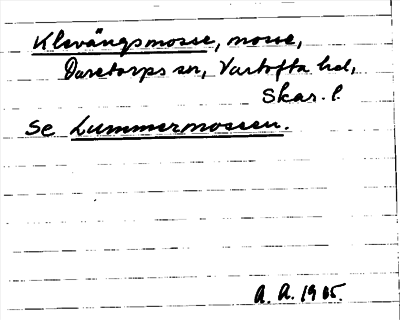 Klevängsmosse, mosse,
Daretorps sn, Vartofta hd,
Skar. l.
Se Lummermossen.
A. A. 1905.